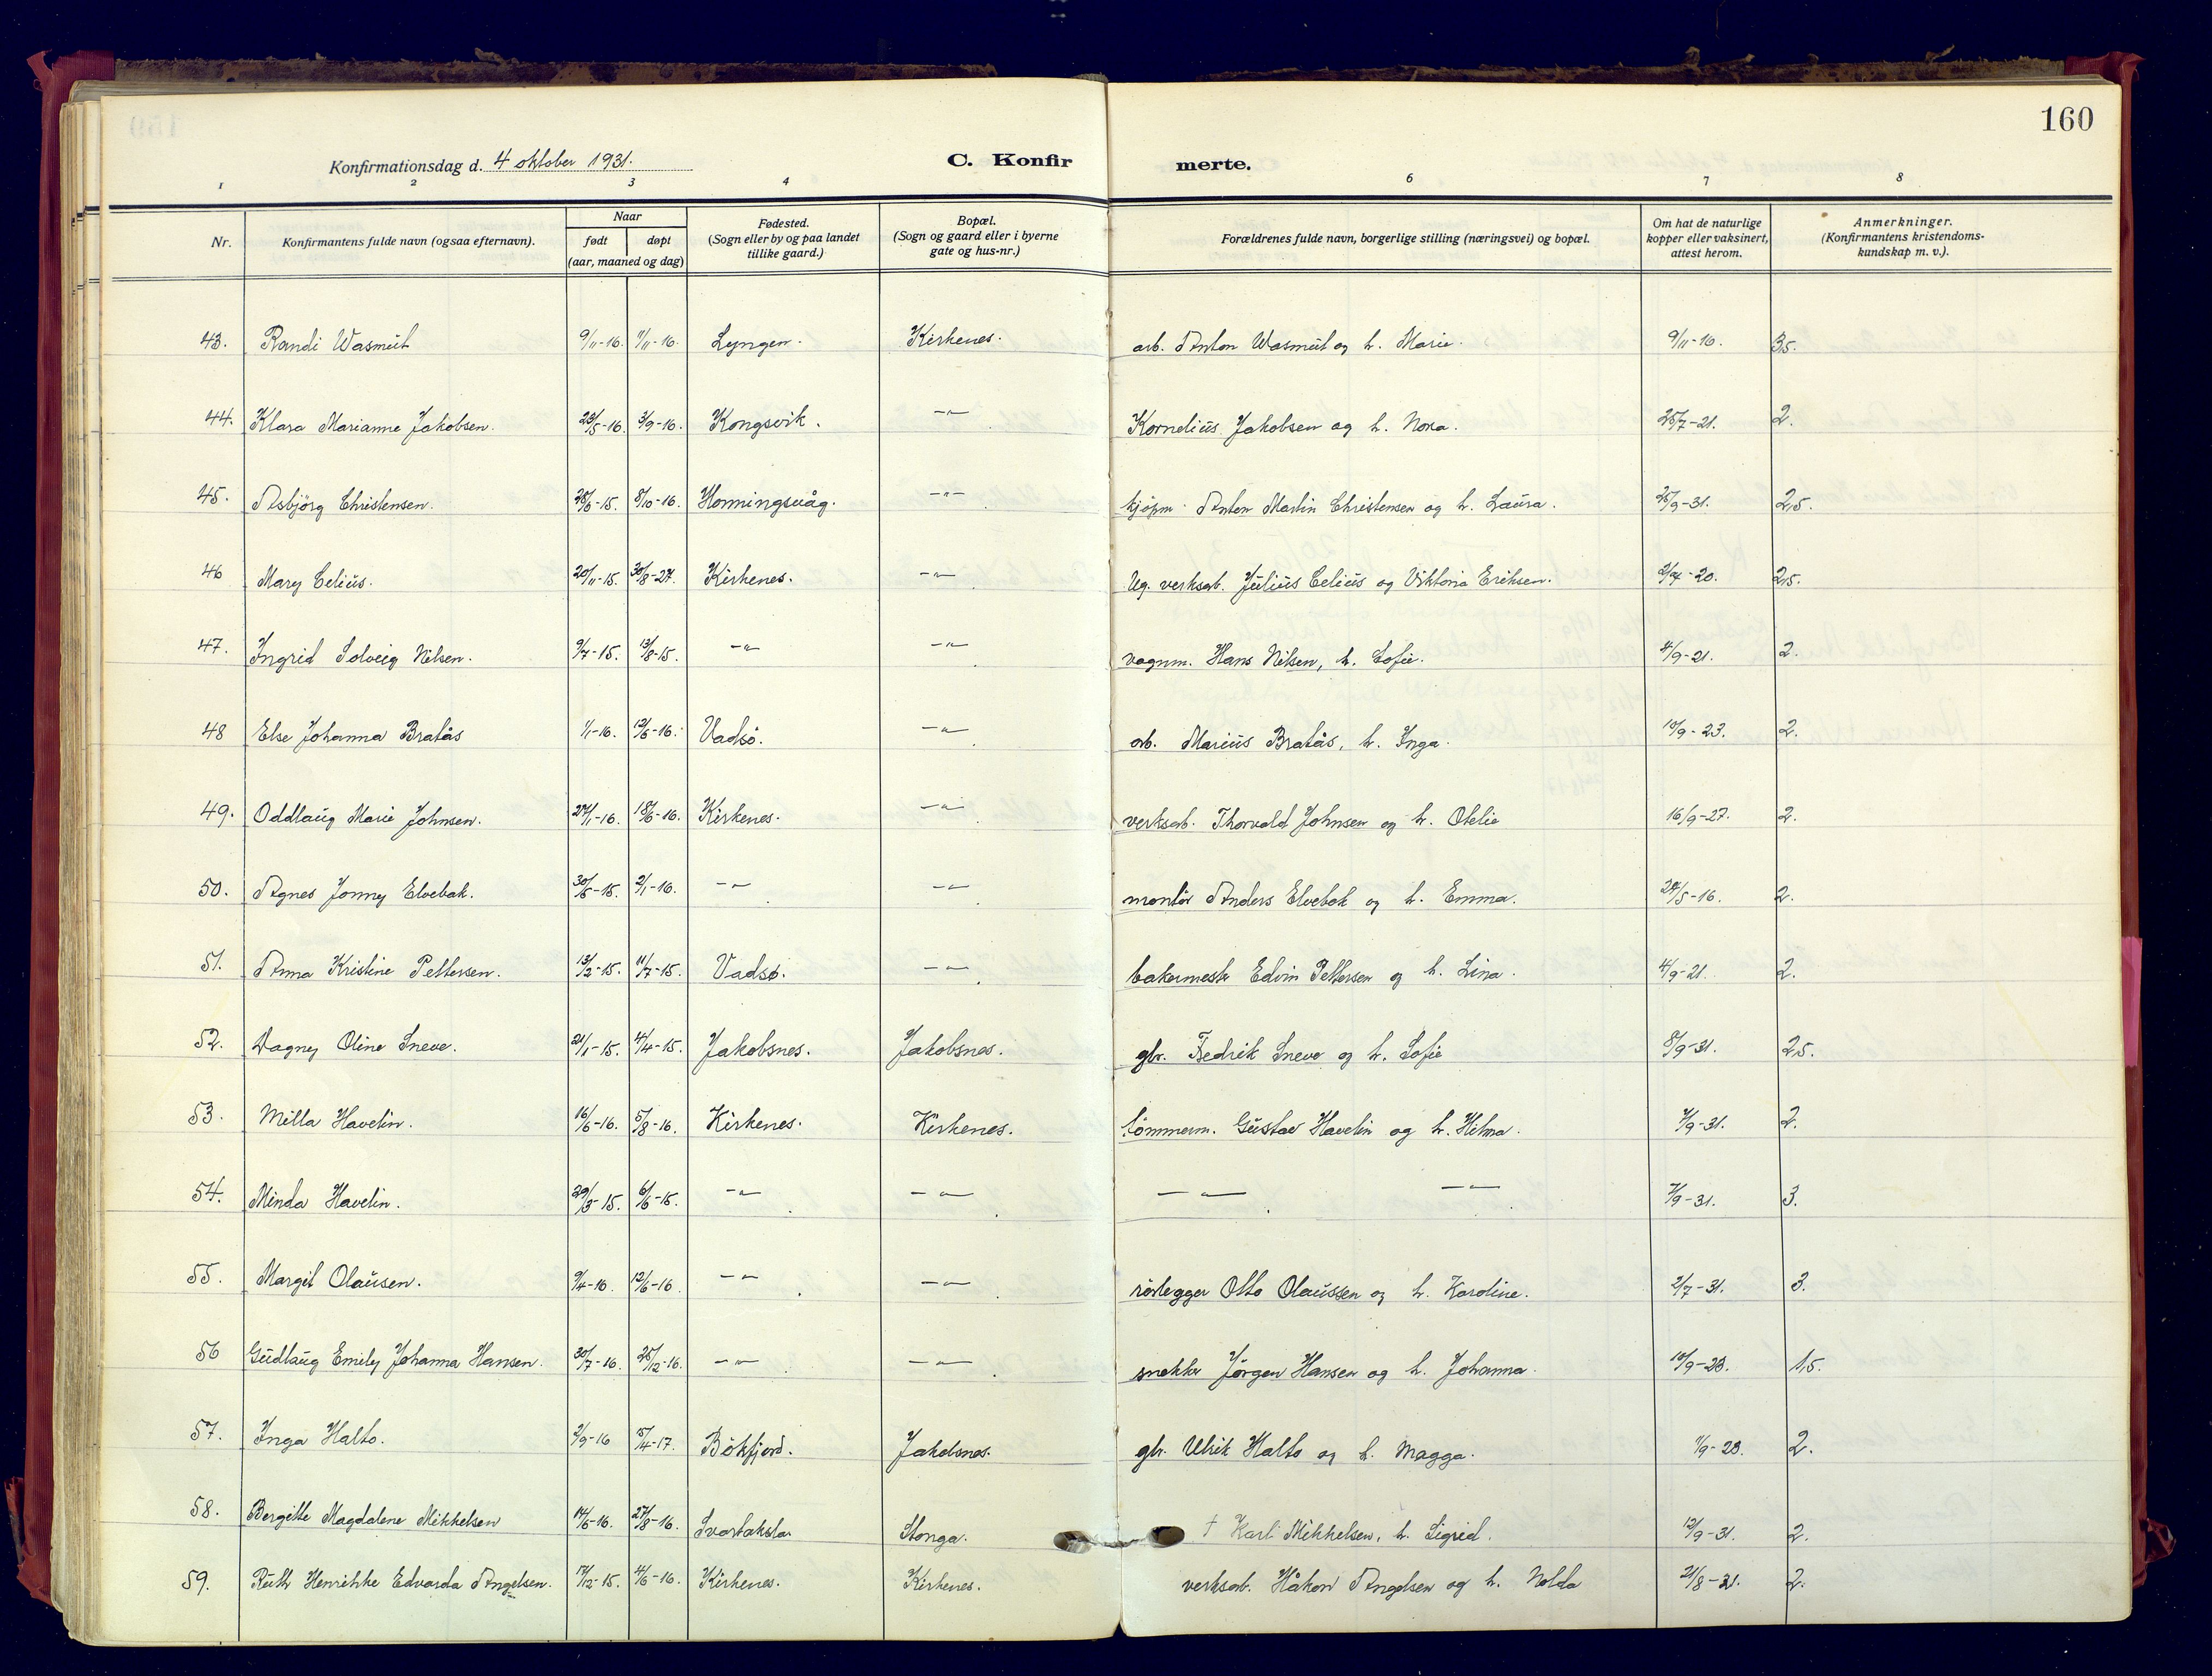 160
Konfirmationsdag d. 4 oktober 1931.
C. Konfir merte.
1 2 3 4 6 7 8
Nr. | Konfirmantens fulde navn (ogsaa efternavn). | Naar født døpt (aar, maaned og dag) | Fødested. (Sogn eller by og paa landet tillike gaard.) | Bopæl. (Sogn og gaard eller i byerne gate og hus-nr.) | Forældrenes fulde navn, borgerlige stilling (næringsvei) og bopæl. | Om hat de naturlige kopper eller vaksinert, attest herom. | Anmerkninger. (Konfirmantens kristendoms-kundskap m. v.).
43. Randi Wasmut 9/11-16. Lyngen. Kirkenes. arb. Anton Wasmut og h. Marie. 9/11-16. 3,5.
44. Klara Marianne Jakobsen. 23/5-16. 3/9-16. Kongsvik. —"— Kornelius Jakobsen og h. Nora. 25/7-21. 2.
45. Asbjörg Christensen. 8/10-16. Honningsvåg. —"— kjöpm. Anton Martin Christensen og h. Laura. 25/9-31. 2,5.
46 Mary Celius. 20/11-15. 30/8-27. Kirkenes. —"— Ug. verksarb. Julius Celius og Viktoria Eriksen. 2,5.
47. Ingrid Solveig Nilsen. 9/7-15. 13/8-15. —"— —"— vognm. Hans Nilsen, h. Sofie. 4/9-21. 2.
48 Else Johanna Bratås 1/1-16. 12/6-16. Vadsö. —"— arb. Marius Bratås, h. Inga. 10/9-23. 2.
49. Oddlaug Marie Johnsen. 27/1-16. 18/6-16. Kirkenes. —"— verksarb. Thorvald Johnsen og h. Otelie 16/9-27. 2.
50. Agnes Jonny Elvebak. 2/1-16. —"— —"— montör Anders Elvebak og h. Emma. 24/5-16. 2.
51. Anna Kristine Pettersen. 13/2-15. 11/7-15. Vadsö. —"— bakermestr Edvin Pettersen og h. Lina. 4/9-21. 2.
52. Dagny Oline Sneve. 21/1-15. 4/4-15. Jakobsnes. Jakobsnes. gbr. Fredrik Sneve og h. Sofie 8/9-31. 2,5.
53. Milla Havelin. 16/6-16. 5/8-16. Kirkenes. Kirkenes. tömmerm. Gustav Havelin og h. Hilma. 7/9-31. 2.
54. Minda Havelin. 29/3-15. 6/6-15. —"— —"— —"— —"— 7/9-31. 3.
55. Margit Olausen. 9/4-16. 12/6-16 —"— —"— rörlegger Otto Olaussen og h. Karoline. 2/7-31. 3.
56 Gudlaug Emily Johanna Hansen. 30/7-16. 25/12-16. —"— —"— snekker Jörgen Hansen og h. Johanna. 10/9-23. 1,5.
57. Inga Halto. 2/9-16 15/4-17. Bökfjord. Jakobsnes. gbr. Ulrik Halto og h. Magga. 2.
58. Bergitte Magdalene Mikkelsen 14/6-16. 27/8-16. Svartaksla Stonga. † Karl Mikkelsen, h. Sigrid. 12/9-31. 2.
59. Ruth Henrikke Edvarda Angelsen. 17/12-15. 4/6-16. Kirkenes. Kirkenes. verksarb. Håkon Angelsen og h. Nolda 21/8-31. 2.